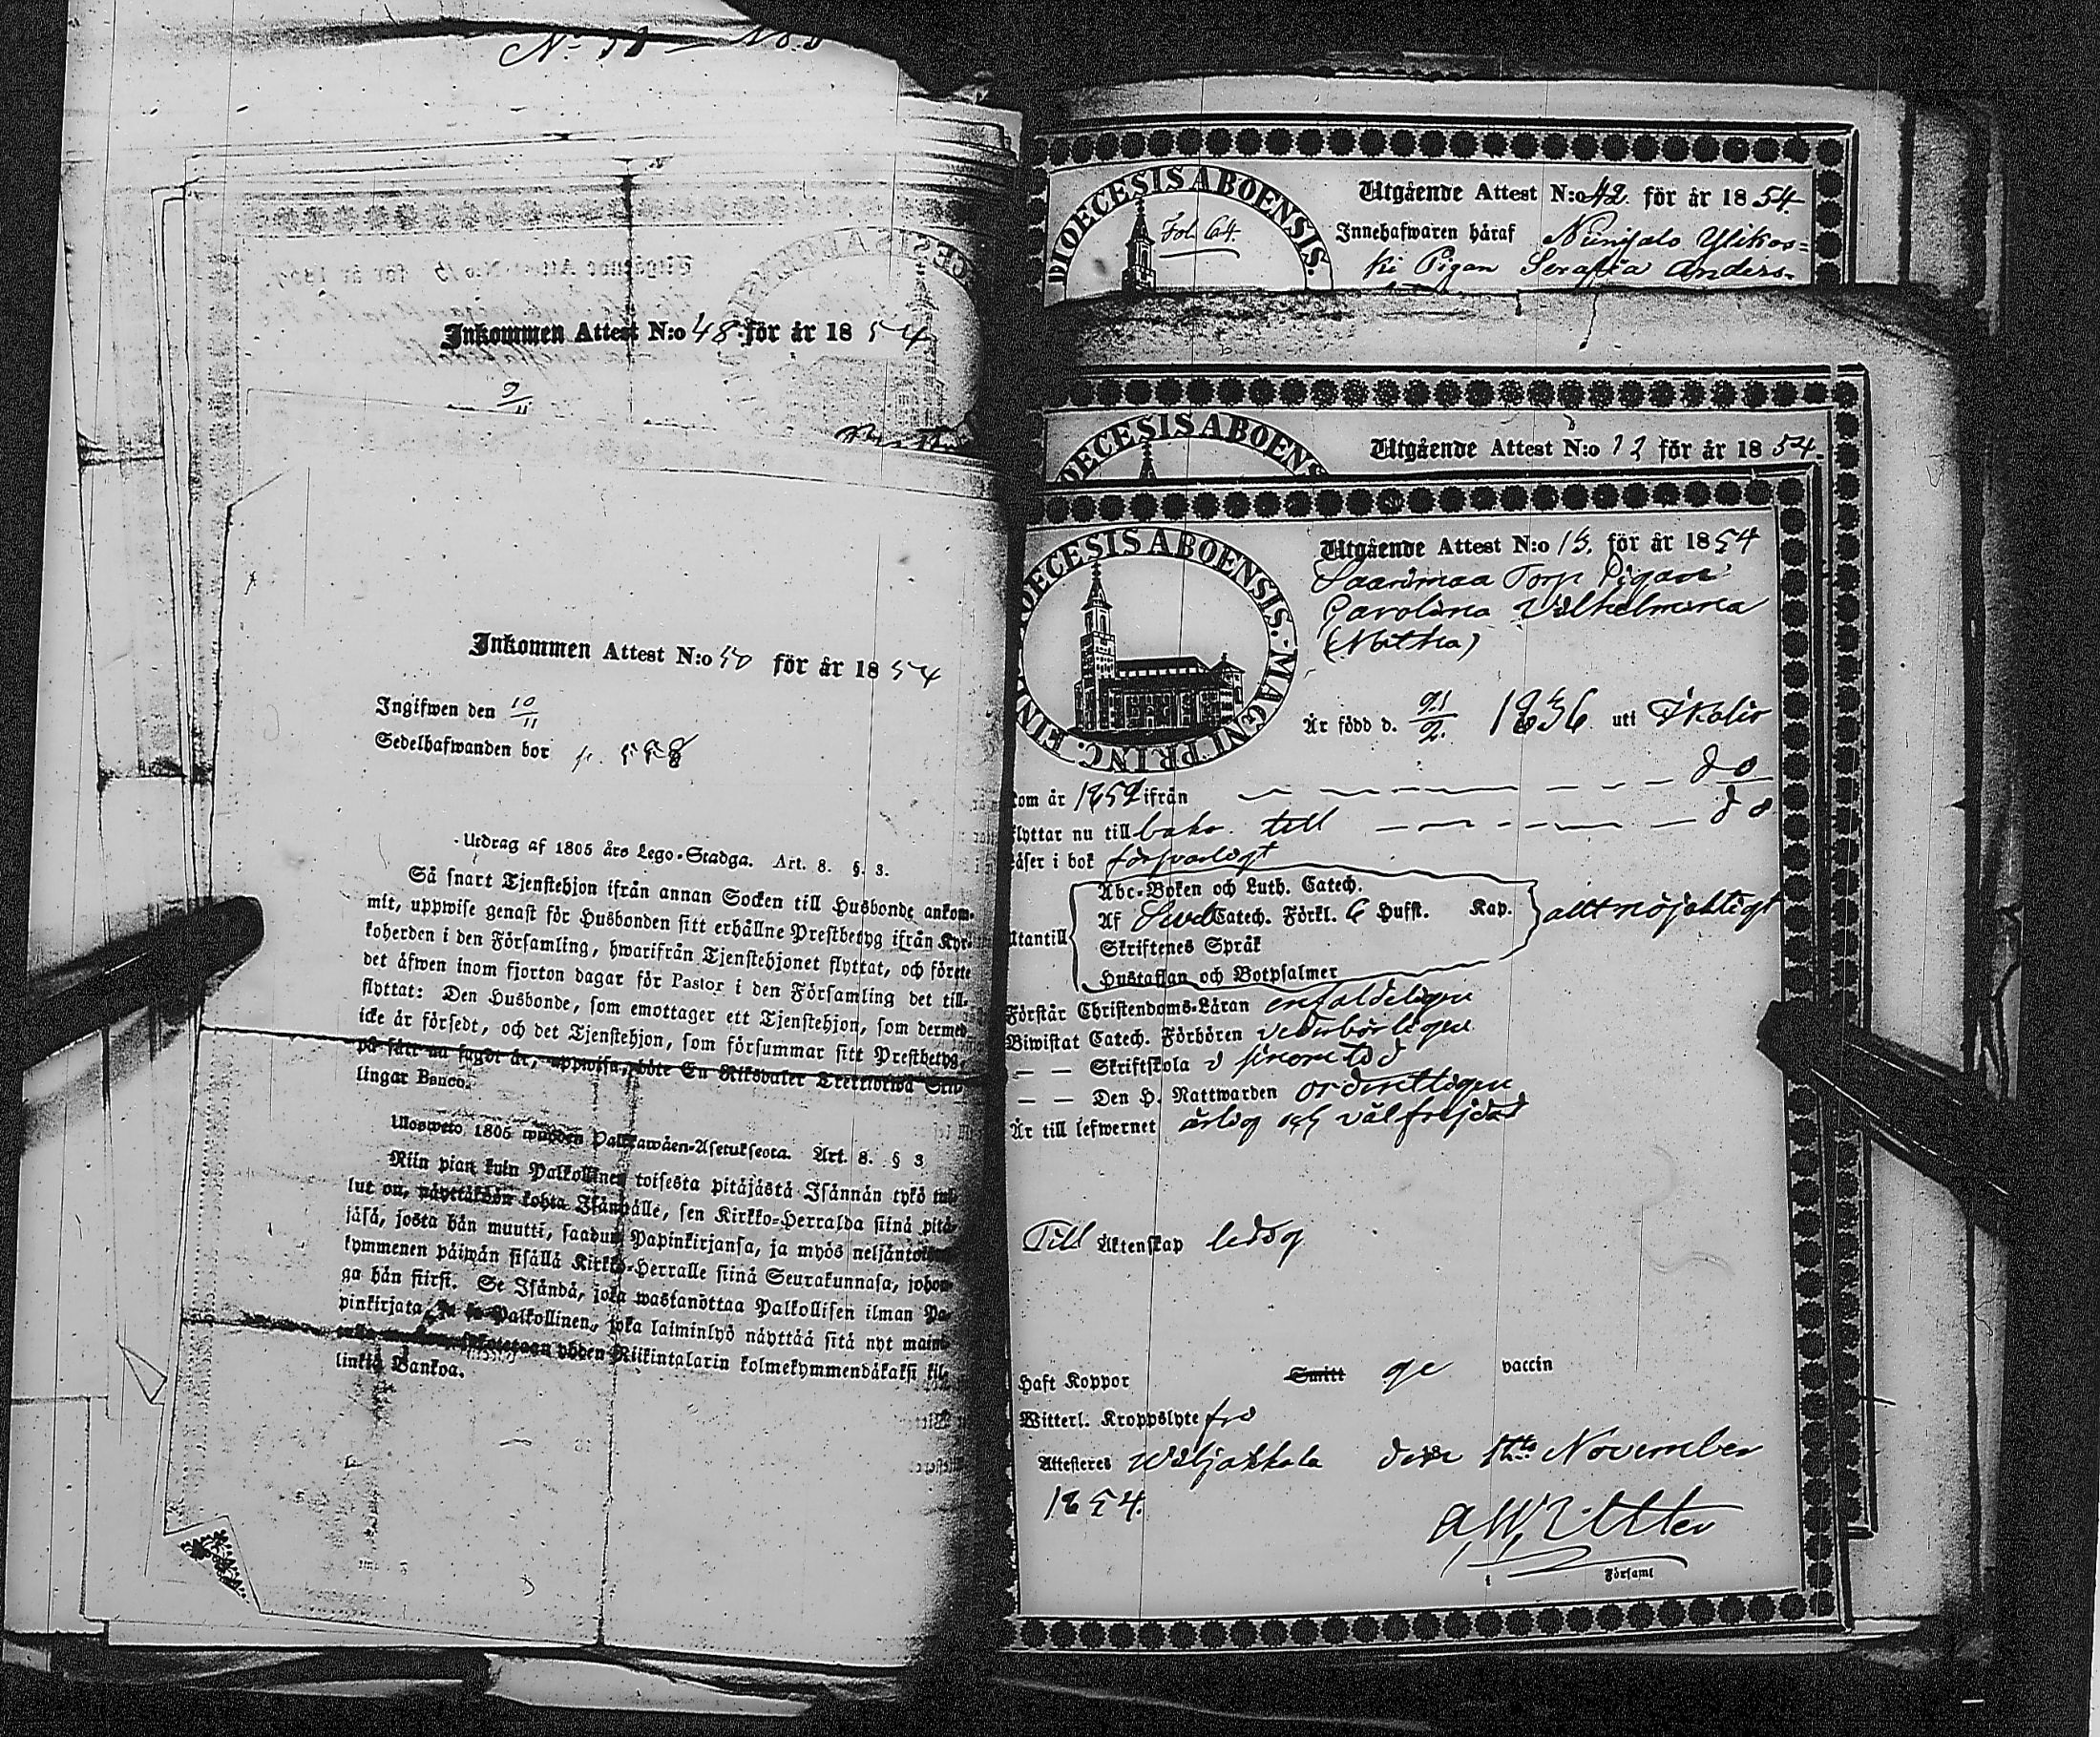 Inkommen Attest N:o 48 för år 1854
9/11
Inkommen Attest N:o 50 för år 1854
Ingifwen den 10/11
Sedelhafwanden bor p. 558
Utdrag af 1805 års Lego-Stadga. Art. 8. §. 3.
Så snart Tjenstehjon ifrån annan Socken till Husbonde ankom-
mit, uppwise genast för Husbonden sitt erhållne Prestbetyg ifrån Kyr-
koherden i den Församling, hwarifrån Tjenstehjonet flyttat, och förete
det åfwen inom fjorton dagar för Pastor i den Församling det till-
flyttat: Den Husbonde, som emottager ett Tjenstehjon, som dermed
icke år försedt, och det Tjenstehjon, som försummar sitt Prestbetyg,
på sått nu sagdt år, uppwisa, böte En Riksdaler Trettiotwå Skil-
lingar Banco.
Ulosweto 1805 wuoden Palkkawåen-Asetuksesta. Art. 8. § 3
Niin pian kuin Palkollinen toisesta pitåjåstå Isånnån tykö tul-
lut on, nåyttåköön kohta Isånnålle, sen Kirkko-Herralda siinå pitå-
jåså, josta hån muutti, saadun Papinkirjansa, ja myös neljåntois-
kymmenen påiwån sisållå Kirkko-Herralle siinå Seurakunnasa, johon-
ga hån siirsi. Se Isåndå, joka wastanottaa Palkollisen ilman Pa-
pinkirjata, ja se Palkollinen, joka laiminlyö nåyttåå sitå nyt main-
yhden Riikintalarin kolmekymmendåkaksi kil-
linkiå Bankoa.
DIOECESIS ABOENSIS.
Fol. 64.
Utgående Attest N:o 42. för år 1854.
Innehafwaren håraf Ylikos-
ki Pigan Serafia Anders-
DIOECESIS ABOENSIS
Utgående Attest N:o 12 för år 1854.
DIOECESIS ABOENSIS. MAGNI PRINC. FINL.
Utgående Attest N:o 13. för år 1854
Saarimaa Torp Pigan
Carolina Wilhelmina
(Matka)
År född d. 21/2. 1836 uti Ikalis
kom år 1852 ifrån — — — do
flyttar nu till baka till — — — do
Låser i bok försvarligt
Utantill
Abc-Boken och Luth. Catech.
Af Sved Catech. Förkl. 6 Hufst. Kap. allt nöjaktigt
Skriftenes Språk
Hustaflan och Botpsalmer
Förstår Christendoms-Låran enfaldeligen
Biwistat Catech. Förhören vederbörligen
— — Skriftskola i sinom tid
— — Den H. Nattwarden ordentligen
År till lefwernet ärlig och välfrejdad
Till Åktenskap ledig
Haft Koppor Smitt ge vaccin
Witterl. Kroppslyte fri
Attesteres Wiljakkala den 1sta November
1854.
i Församl